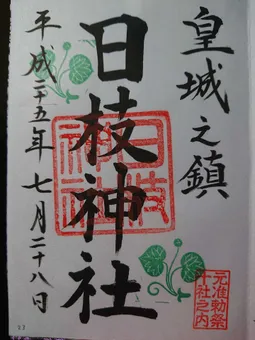 皇城之鎮
日枝神社
平成二十五年七月二十八日
日枝
神社
元准勅祭
十社之内